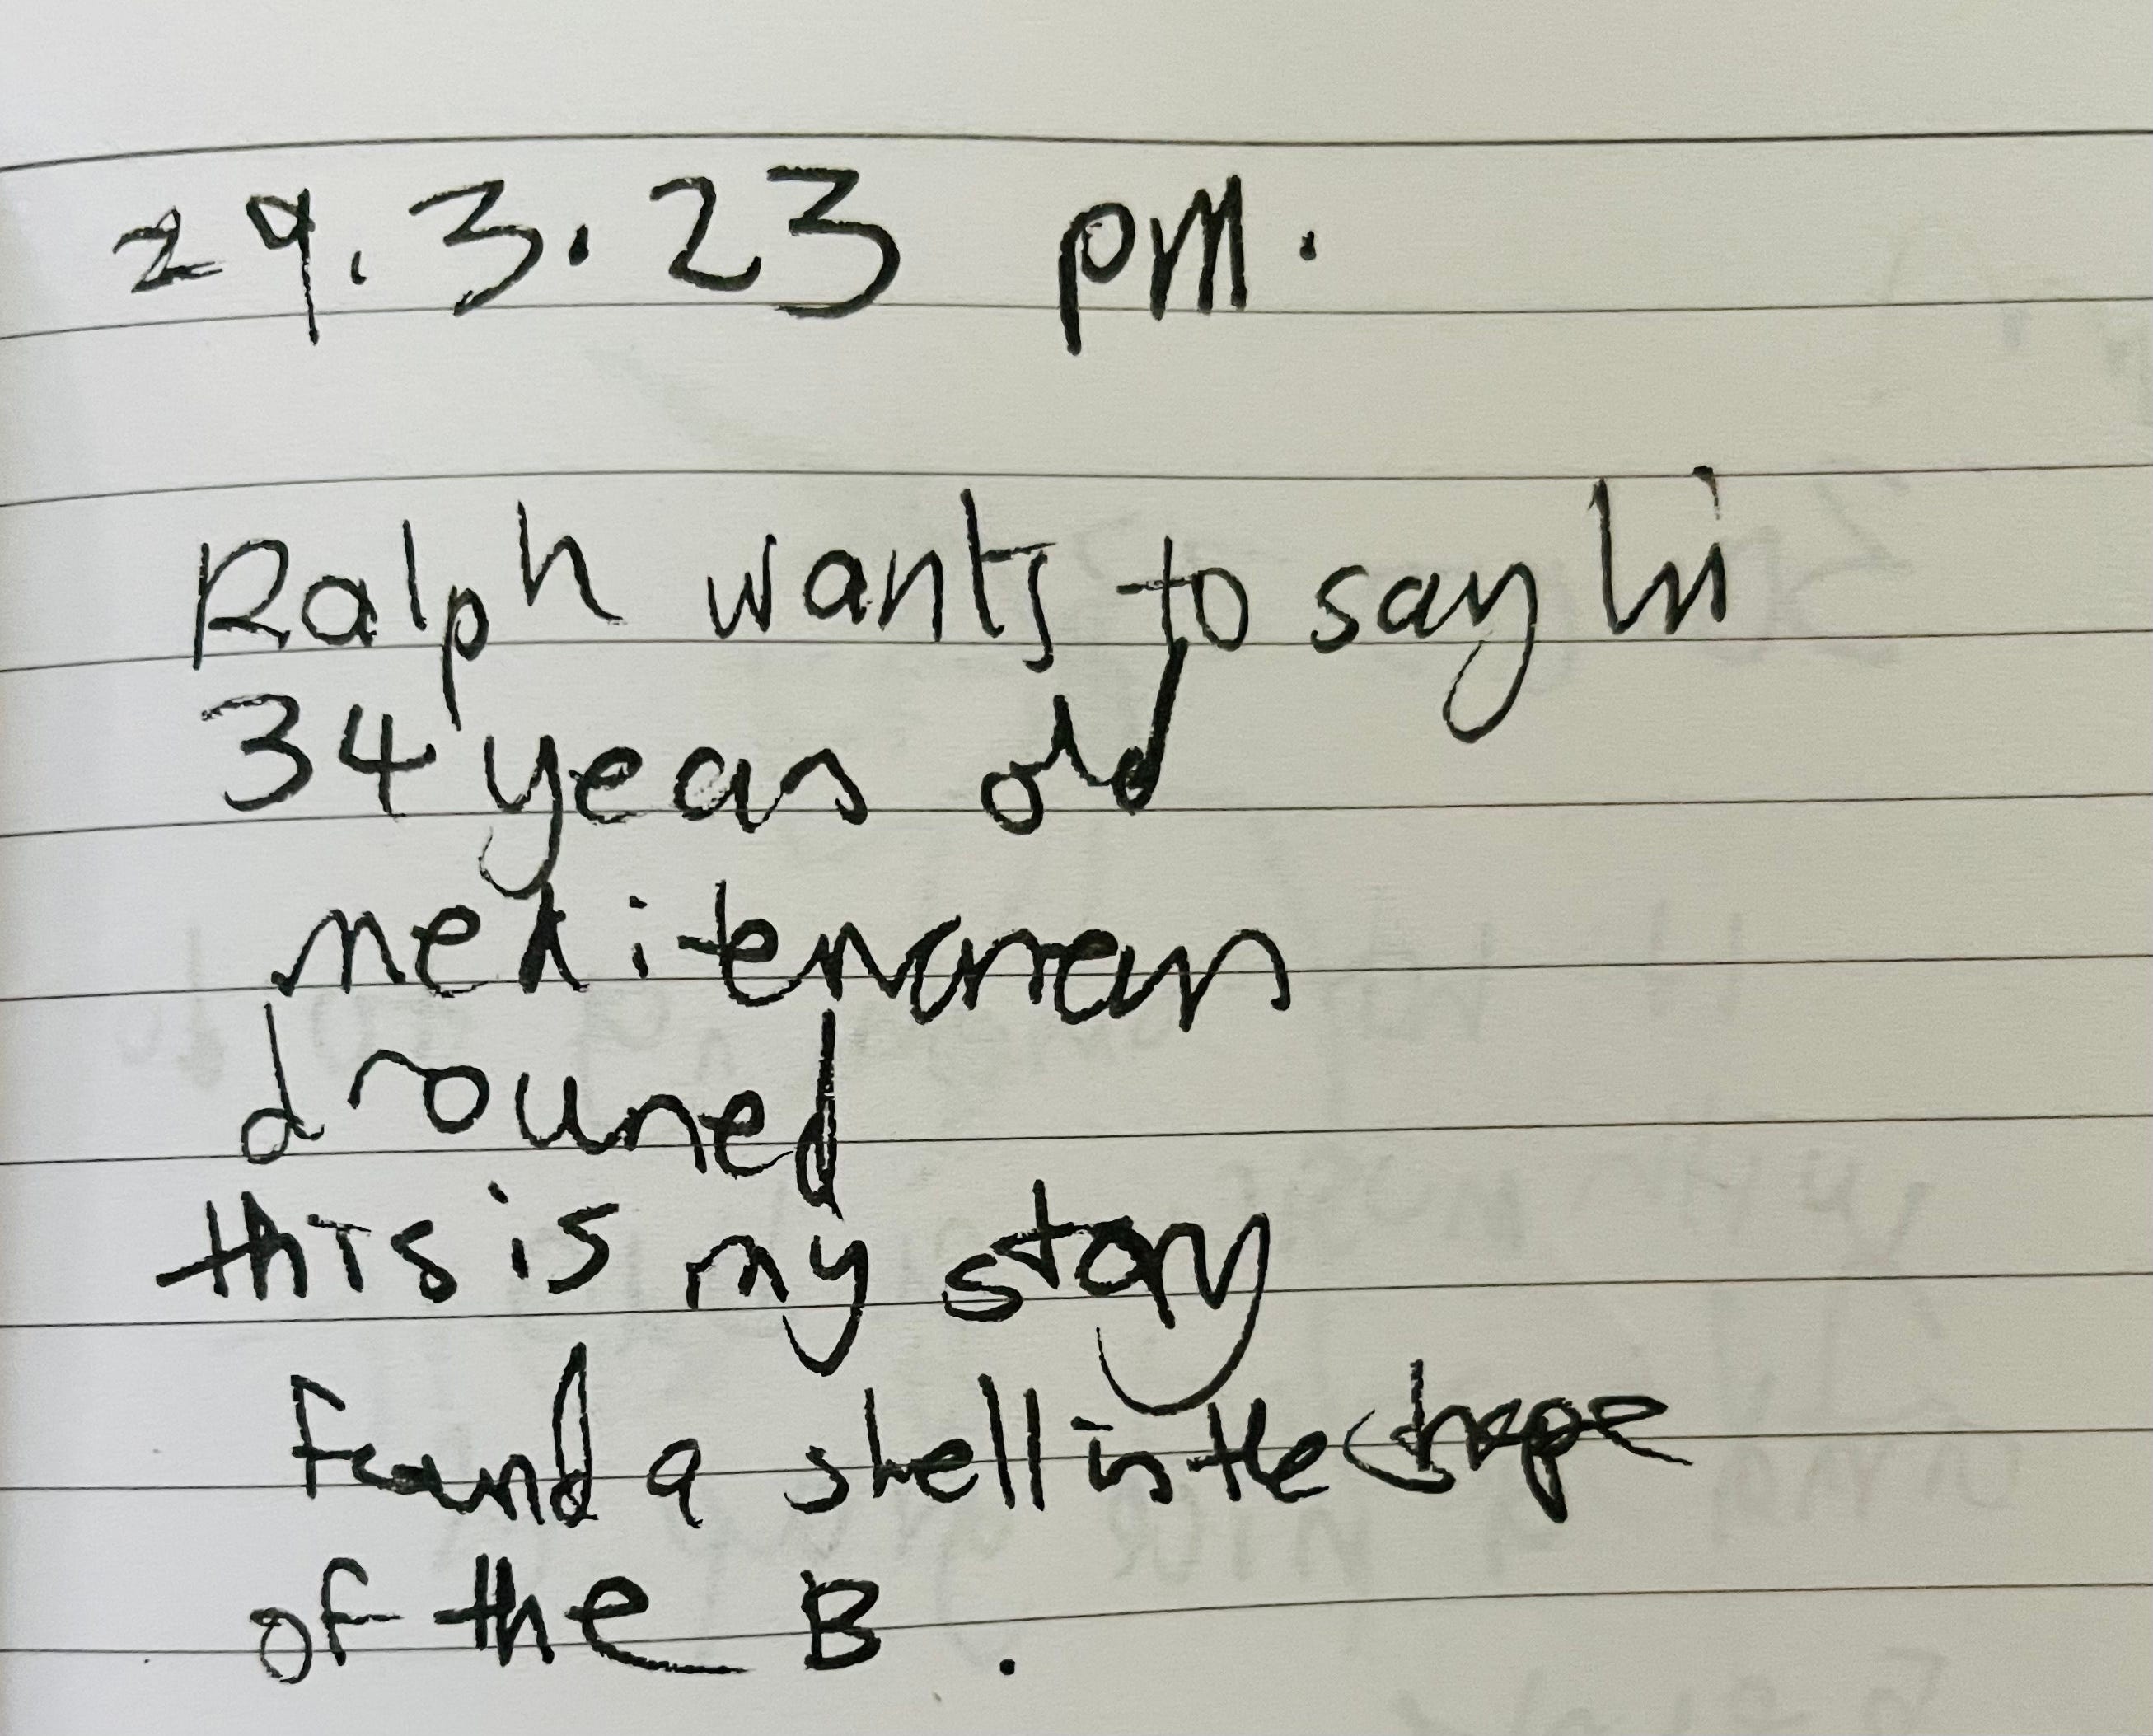 29.3.23 pm.
Ralph wants to say hi
34 years old
mediterranean
drouned
this is my story
found a shell in the shape
of the B.